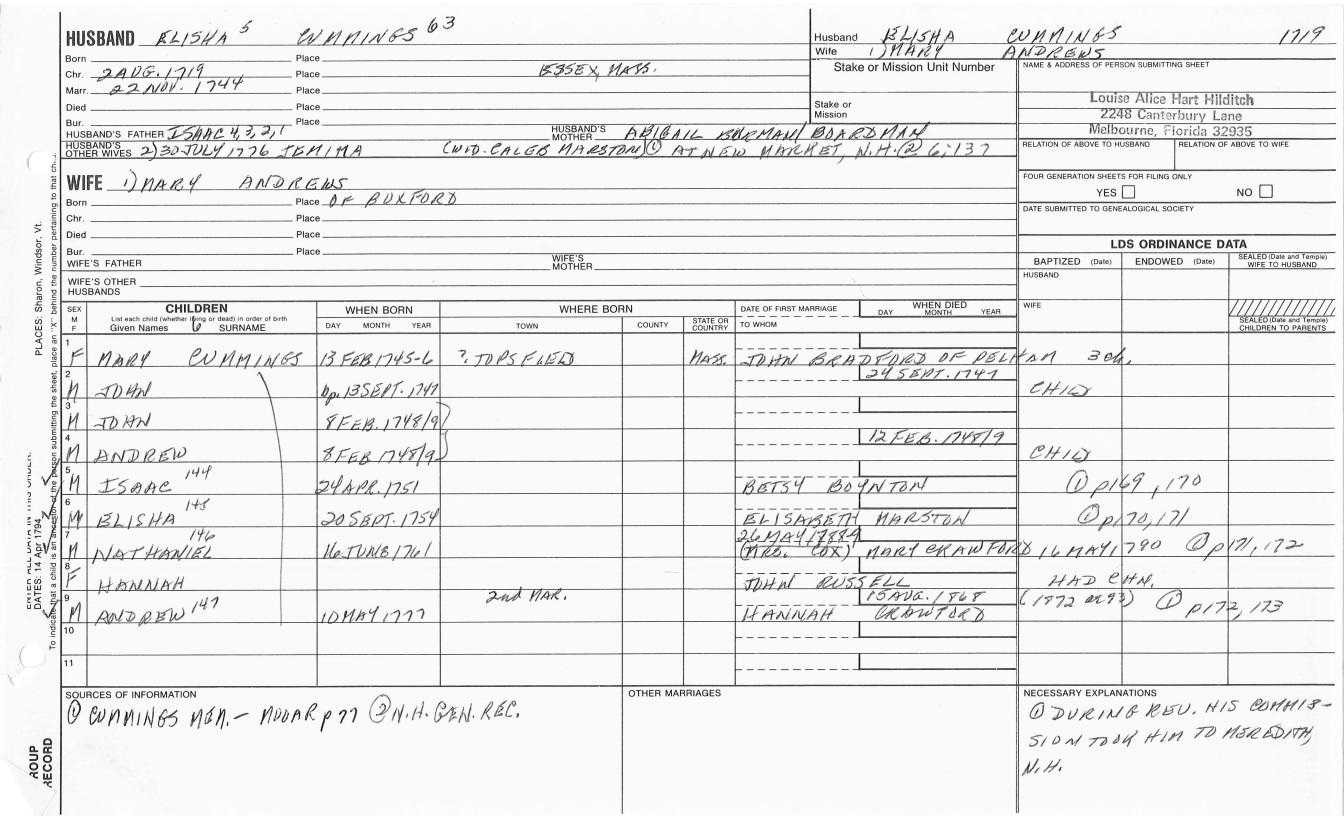 HUSBAND ELISHA 5 CUMMINGS 63
Husband ELISHA CUMMINGS 1719
Wife 1) MARY ANDREWS
Born Place
Chr. 2 AUG. 1719 Place ESSEX, MASS.
Marr. 22 NOV. 1744 Place
Died Place
Bur. Place
HUSBAND'S FATHER ISAAC 4, 3, 2, 1 HUSBAND'S MOTHER ABIGAIL BURMAN/BOARDMAN
HUSBAND'S OTHER WIVES 2) 30 JULY 1776 JEMIMA (WID. CALEB MARSTON) ① AT NEW MARKET, N.H. ② 6:137
Stake or Mission Unit Number
Stake or Mission
NAME & ADDRESS OF PERSON SUBMITTING SHEET
Louise Alice Hart Hilditch
2248 Canterbury Lane
Melbourne, Florida 32935
RELATION OF ABOVE TO HUSBAND RELATION OF ABOVE TO WIFE
FOUR GENERATION SHEETS FOR FILING ONLY
YES NO
DATE SUBMITTED TO GENEALOGICAL SOCIETY
WIFE 1) MARY ANDREWS
Born Place OF BOXFORD
Chr. Place
Died Place
Bur. Place
WIFE'S FATHER WIFE'S MOTHER
WIFE'S OTHER HUSBANDS
LDS ORDINANCE DATA
BAPTIZED (Date) ENDOWED (Date) SEALED (Date and Temple) WIFE TO HUSBAND
HUSBAND
WIFE
SEALED (Date and Temple) CHILDREN TO PARENTS
SEX M F
CHILDREN
List each child (whether living or dead) in order of birth
Given Names 6 SURNAME
WHEN BORN
DAY MONTH YEAR
WHERE BORN
TOWN COUNTY STATE OR COUNTRY
DATE OF FIRST MARRIAGE
TO WHOM
WHEN DIED
DAY MONTH YEAR
1 F MARY CUMMINGS 13 FEB 1745-6 ?. TOPSFIELD MASS. JOHN BRADFORD OF PELHAM 3 ch.
2 24 SEPT. 1747
M JOHN bp. 13 SEPT. 1747 CHILD
3 M JOHN 8 FEB. 1748/9
4 12 FEB. 1748/9
M ANDREW 8 FEB 1748/9 CHILD
5 M ISAAC 144 24 APR. 1751 BETSY BOYNTON ① p169, 170
6 M ELISHA 145 20 SEPT. 1754 ELISABETH MARSTON ① p170, 171
7 26 MAY 1788/9
M NATHANIEL 146 16 JUNE 1761 (MRS. COX) MARY CRAWFORD 16 MAY 1790 ① p171, 172
8 F HANNAH JOHN RUSSELL HAD CHN.
9 2nd MAR. 15 AUG. 1868
M ANDREW 147 10 MAY 1777 HANNAH CRAWFORD (1872 or 93) ① p172, 173
10
11
SOURCES OF INFORMATION
① CUMMINGS MEM. - MOOAR p 77 ② N.H. GEN. REC.
OTHER MARRIAGES
NECESSARY EXPLANATIONS
① DURING REV. HIS COMMIS-
SION TOOK HIM TO MEREDITH,
N.H.
PLACES: Sharon, Windsor, Vt.
ENTER ALL DATA IN THIS ORDER:
DATES: 14 Apr 1794
ROUP
RECORD